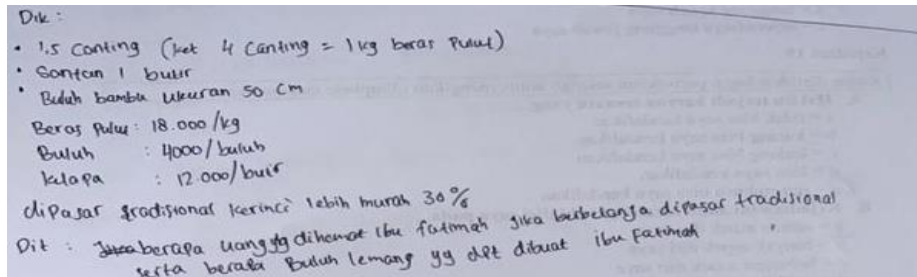 Dik :
• 1,5 Canting (ket 4 Canting = 1 kg beras Pulut)
• Santan 1 butir
• Buluh bambu ukuran 50 cm
Beras Pulut : 18.000/kg
Buluh : 4000/buluh
kelapa : 12.000/butir
dipasar tradisional kerinci lebih murah 30%
Dit : berapa uang yg dihemat Ibu fatimah jika berbelanja dipasar tradisional
serta berapa Buluh lemang yg dpt dibuat ibu Fatimah